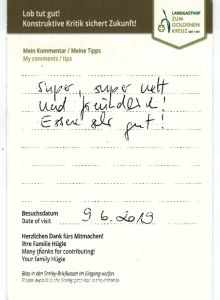 Lob tut gut!
Konstruktive Kritik sichert Zukunft!
LANDGASTHOF
ZUM
GOLDENEN
KREUZ
Mein Kommentar / Meine Tipps
My comments / tips
super, super nett
und freundlich!
Essen sehr gut!
Besuchsdatum
Date of visit
9 6. 2019
Herzlichen Dank fürs Mitmachen!
Ihre Familie Hügle
Many thanks for contributing!
Your family Hügle
Bitte in den Smiley-Briefkasten im Eingang werfen.
Please deposit in the Smiley post box in the entrance.